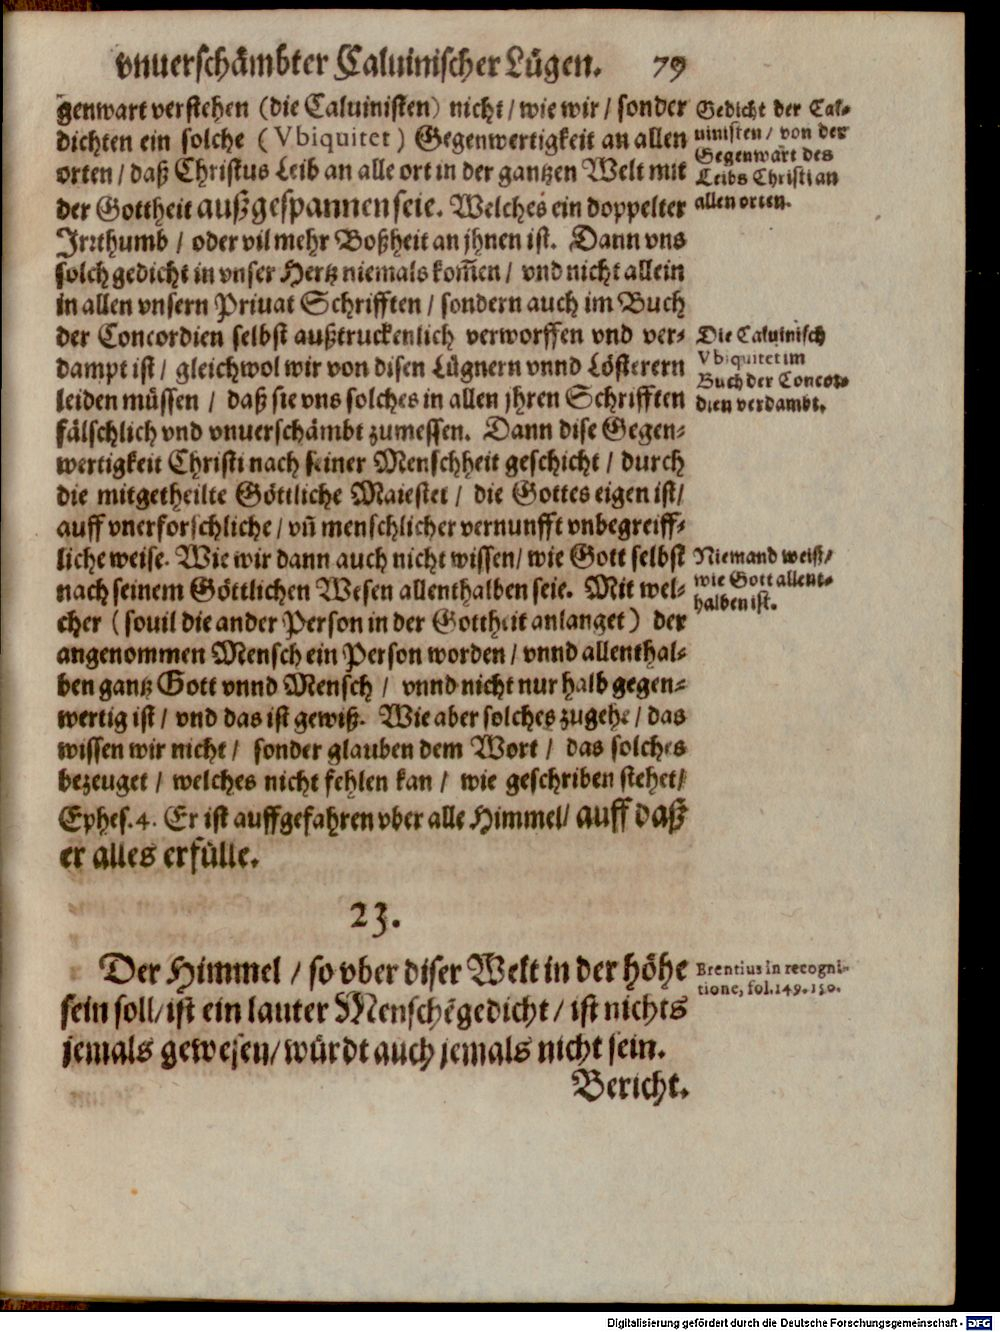 vnuerschämbter Caluinischer Lügen. 79
genwart verstehen (die Caluinisten) nicht / wie wir / sonder
dichten ein solche (Vbiquitet) Gegenwertigkeit an allen
orten / daß Christus Leib an alle ort in der gantzen Welt mit
der Gottheit außgespannen seie. Welches ein doppelter
Irrthumb / oder vil mehr Boßheit an jhnen ist. Dann vns
solch gedicht in vnser Hertz niemals kom̃en / vnd nicht allein
in allen vnsern Priuat Schrifften / sondern auch im Buch
der Concordien selbst außtruckenlich verworffen vnd ver-
dampt ist / gleichwol wir von disen Lügnern vnnd Lösterern
leiden müssen / daß sie vns solches in allen jhren Schrifften
fälschlich vnd vnuerschämbt zumessen. Dann dise Gegen-
wertigkeit Christi nach seiner Menschheit geschicht / durch
die mitgetheilte Göttliche Maiestet / die Gottes eigen ist /
auff vnerforschliche / vn̄ menschlicher vernunfft vnbegreiff-
liche weise. Wie wir dann auch nicht wissen / wie Gott selbst
nach seinem Göttlichen Wesen allenthalben seie. Mit wel-
cher (souil die ander Person in der Gottheit anlanget) der
angenommen Mensch ein Person worden / vnnd allenthal-
ben gantz Gott vnnd Mensch / vnnd nicht nur halb gegen-
wertig ist / vnd das ist gewiß. Wie aber solches zugehe / das
wissen wir nicht / sonder glauben dem Wort / das solches
bezeuget / welches nicht fehlen kan / wie geschriben stehet /
Ephes. 4. Er ist auffgefahren vber alle Himmel / auff daß
er alles erfülle.
Gedicht der Cal-
uinisten / von der
Gegenwart des
Leibs Christi an
allen orten.
Die Caluinisch
Vbiquitet im
Buch der Concor-
dien verdambt.
Niemand weist /
wie Gott allent-
halben ist.
23.
Der Himmel / so vber diser Welt in der höhe
sein soll / ist ein lauter Menschēgedicht / ist nichts
jemals gewesen / würdt auch jemals nicht sein.
Brentius in recogni-
tione, fol. 149. 150.
Bericht.
Digitalisierung gefördert durch die Deutsche Forschungsgemeinschaft - DFG